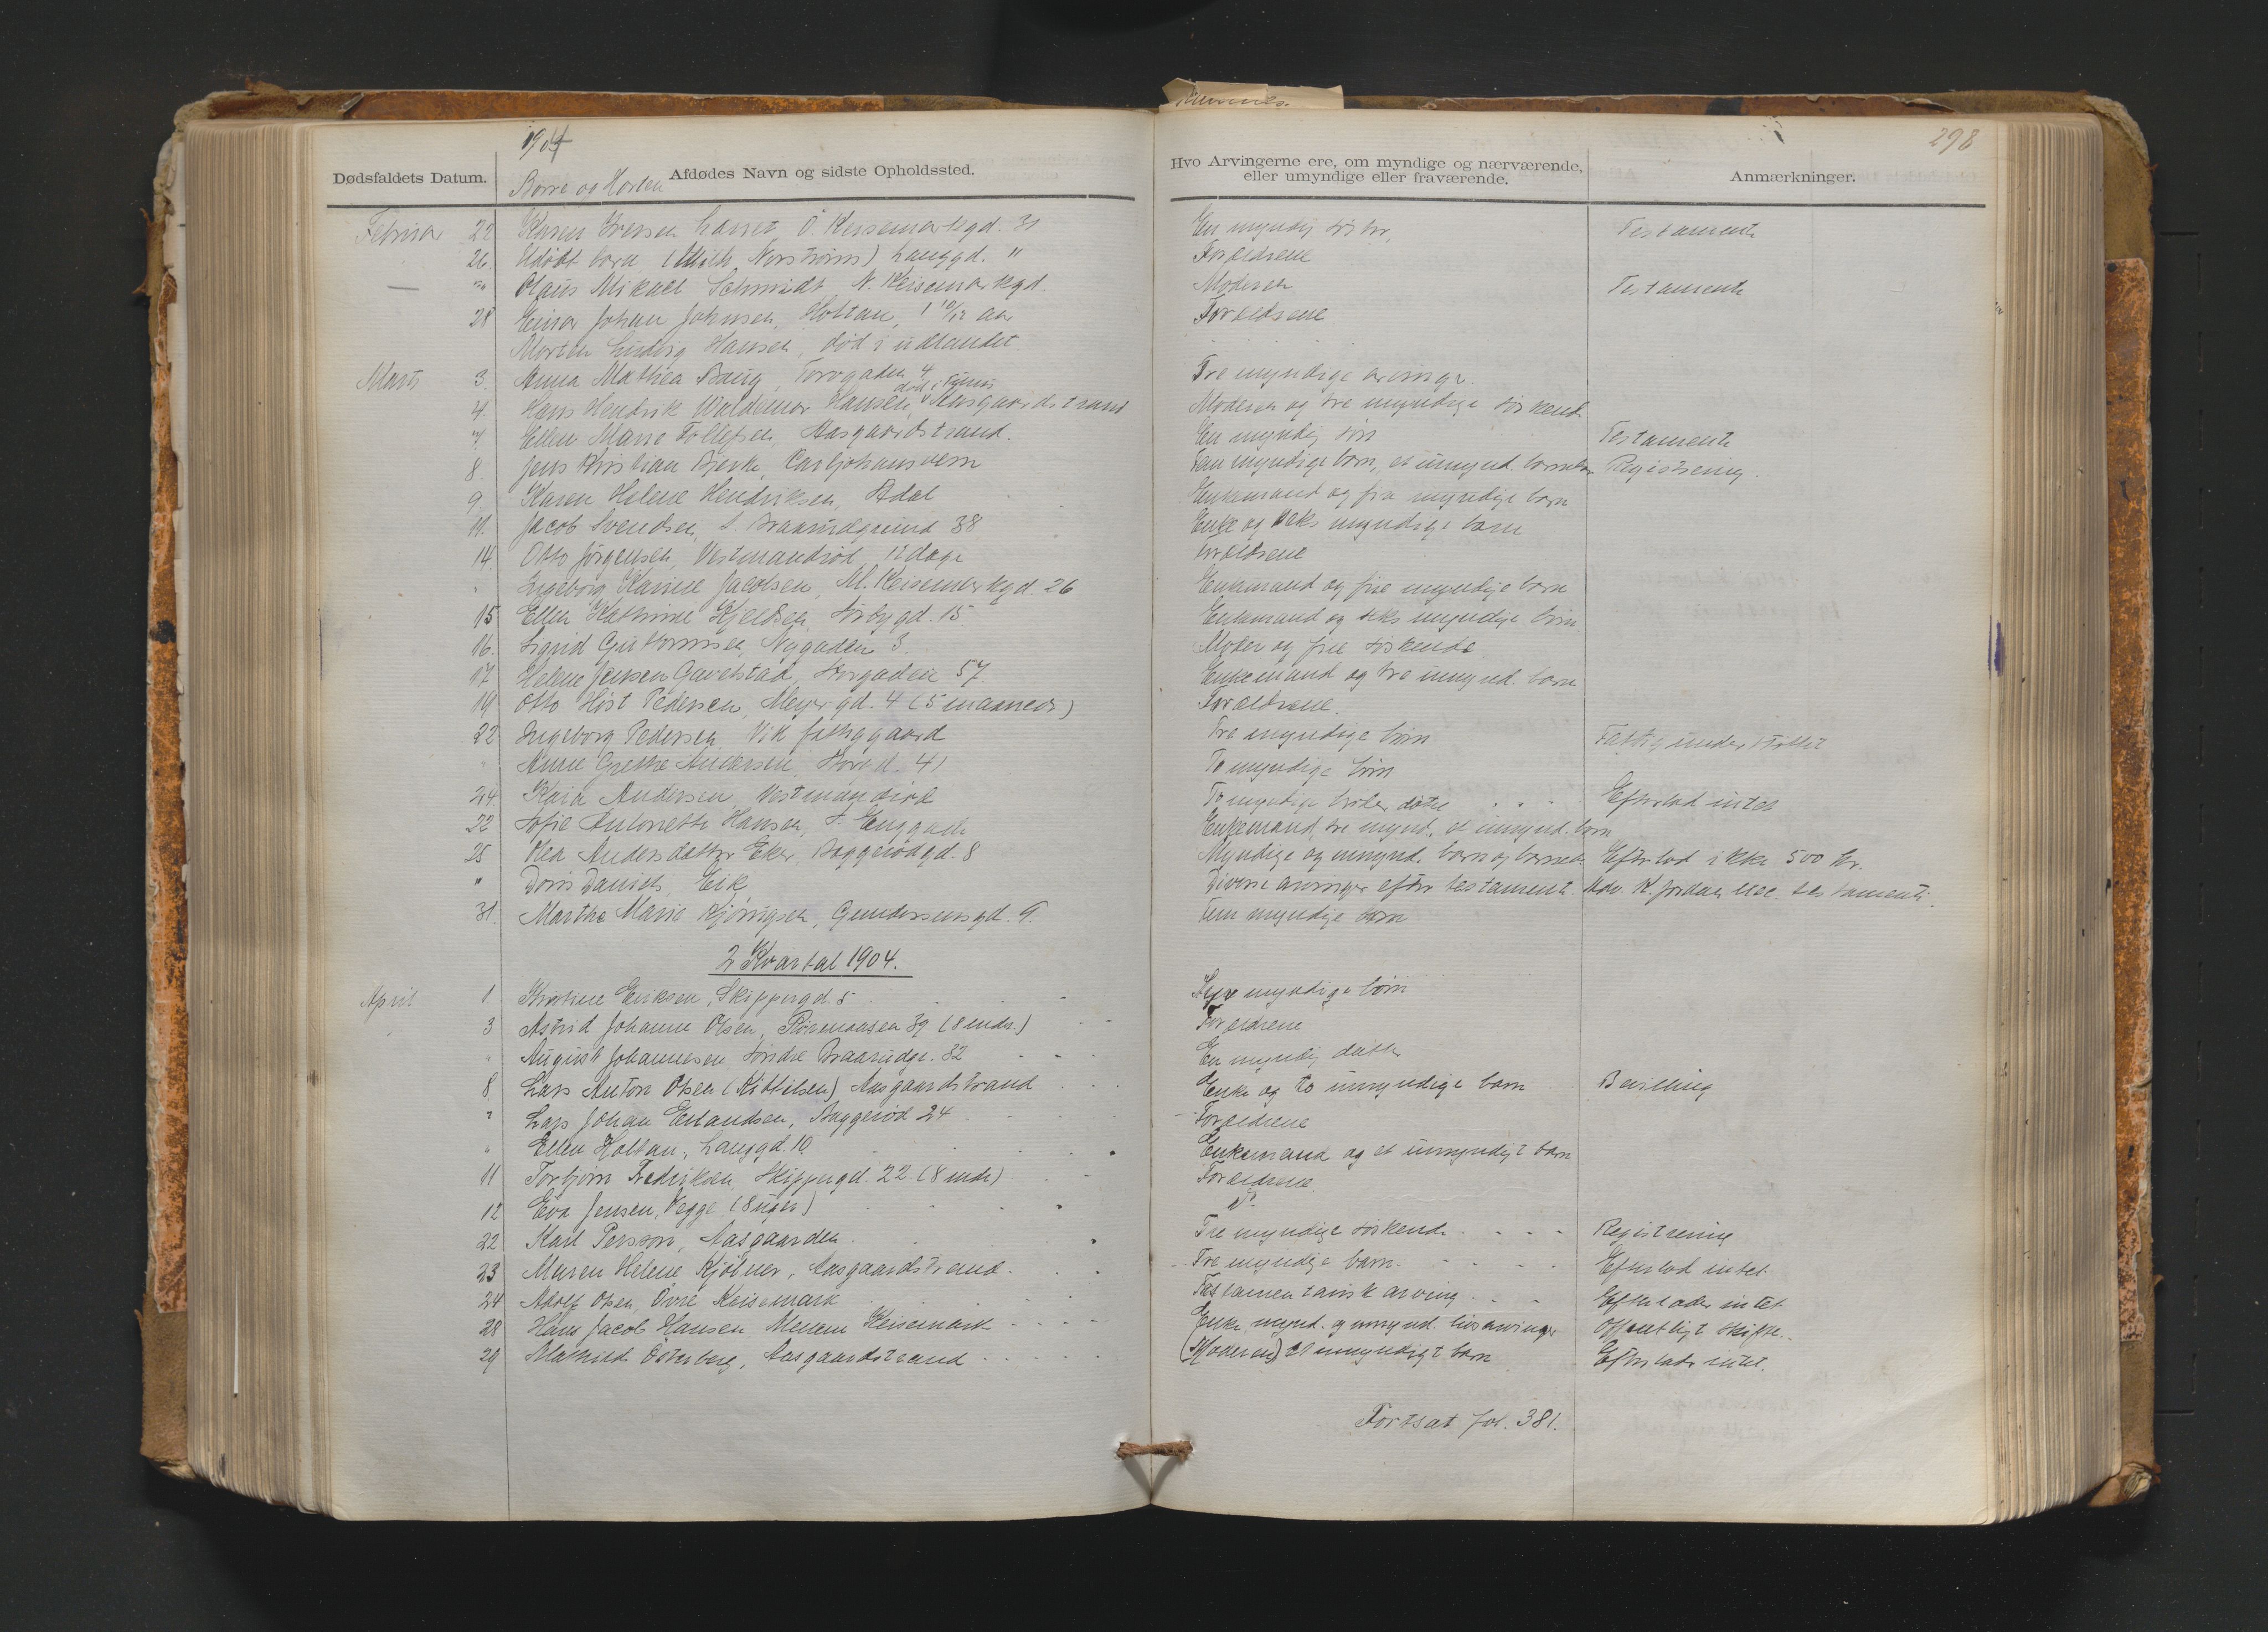 1904
298
Dødsfaldets Datum. Afdødes Navn og sidste Opholdssted. Hvo Arvingerne ere, om myndige og nærværende, Anmærkninger.
Borre og Horten eller umyndige eller fraværende.
Februar 22 Karen Iversen Ö. Keisemarkgd. 31 En myndig Testamente
26. Udöbt barn Langgd. " Forældrene
— "" Olaus Mikael Schmidt N. Keisemarkgd. Moderen Testamente
28 Einar Johan Johnsen, Holtan, 1 10/12 aar Forældrene
Morten Ludvig Hansen, död i udlandet
Marts 3. Anna Mathea Torvgaden 4 Tre myndige
död i Tunis
4. Hans Hendrik Waldemar Hansen, Aasgaardstrand Moderen og tre myndige söskende
7. Ellen Marie Tollefsen, Aasgaardstrand. En myndig sön Testamente
8. Jens Kristian Bjerke, Carljohansvern Fem myndige börn, et umynd. barnebarn Registrering.
9. Karen Helene Hendriksen, Adal Enkemand og fire myndige börn
11. Jacob Svendsen, S. Braarudgrund 38 Enke og seks myndige börn
14. Otto Jörgensen, Vestmandröd, 12 dage Forældrene
" Ingeborg Karine Jacobsen, Ml. Keisemarkgd. 26 Enkemand og fire myndige börn
15 Ellen Kathrine Kjeldsen, gd. 15 Enkemand og seks myndige börn
16. Sigrid Guttormsen, Nygaden 3. Moder og fire söskende
17 Helene Jensen Gavelstad, Storgaden 57. Enkemand og tre umynd. börn
19 Otto Höst Pedersen, Meyergd. 4 (5 maaneder) Forældrene.
22 Ingeborg Pedersen Vik fattiggaard Tre myndige börn Fattigunderstöttet
" Anne Grethe Andersen, 41 To myndige börn
24. Kaia Andersen, Vestmandröd To myndige Efterlod intet
22 Sofie Antonette Hansen, Enggade Enkemand, tre mynd., et umynd. barn
25 Olea Andersdatter Eker, Baggerödgd. 8 Myndige og umynd. börn og barneb. Efterlod ikke 500 kr.
" Doris Daniels, Eik Diverse arvinger efter testamente. Adv. K. Jordan testamente.
31. Marthe Marie Gundersensgd. 9. Fem myndige börn
2 Kvartal 1904.
April 1 Kristine Eriksen, Skippergd. 5 myndige börn
3 Astrid Johanne Olsen, 39 (8 mdr.) Forældrene
" August Johannesen Söndre Braarudgr. 32 En myndig datter
8. Lars Anton Olsen (Kittilsen) Aasgaardstrand Enke og to umyndige börn Bevilling
" Lars Johan Erlandsen, Baggeröd 24 Forældrene
" Ellen Holtan, Langgd. 10 Enkemand og et umyndigt barn
11 Torbjörn Fredriksen, Skippergd. 22. (8 mdr) Forældrene.
12 Eva Jensen, Vegge (8 uger) Do
22 Karl Persson, Aasgaarden Tre myndige söskende Registrering
23 Maren Helene Kjölner, Aasgaardstrand. Tre myndige börn. Efterlod intet.
24 Adolf Olsen, Övre Keisemark Testamentarisk arving Efterlader intet.
28 Hans Jacob Hansen Mellem Keisemark Enke mynd. og umynd. livsarvinger Offentligt skifte.
29 Mathilde Österberg, Aasgaardstrand (Moderen) Et umyndigt barn Efterlader intet.
Fortsat fol. 381.